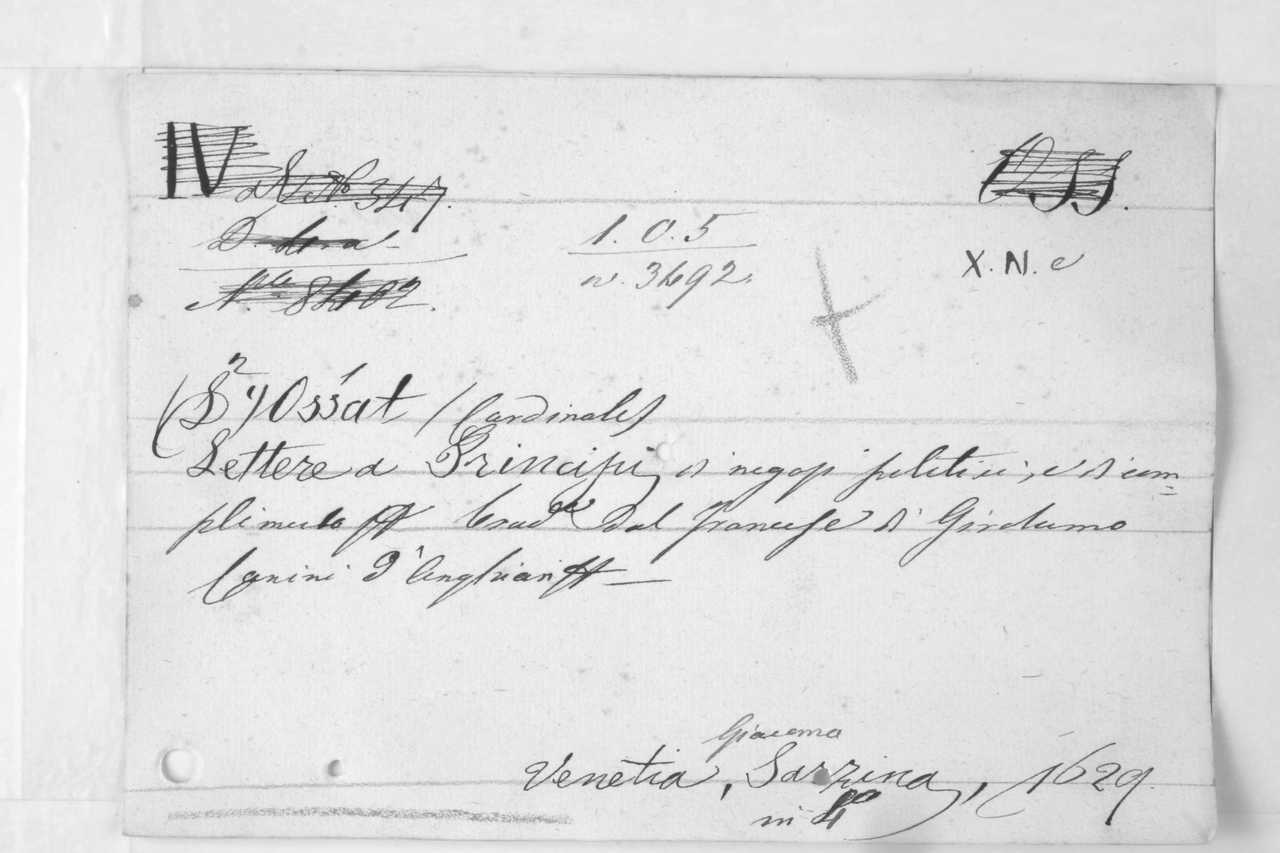 IV
No 347.
OSS.
1. O. 5
X. N. e
n. 3492.
Npla 8402.
Ossat (Cardinale)
Lettere a Principi di negozj politici, e di com=
plimento trad.e dal francese di Girolamo
Canini d'Anghiari
Giacomo
Venetia, Sarzina, 1629.
in 4o